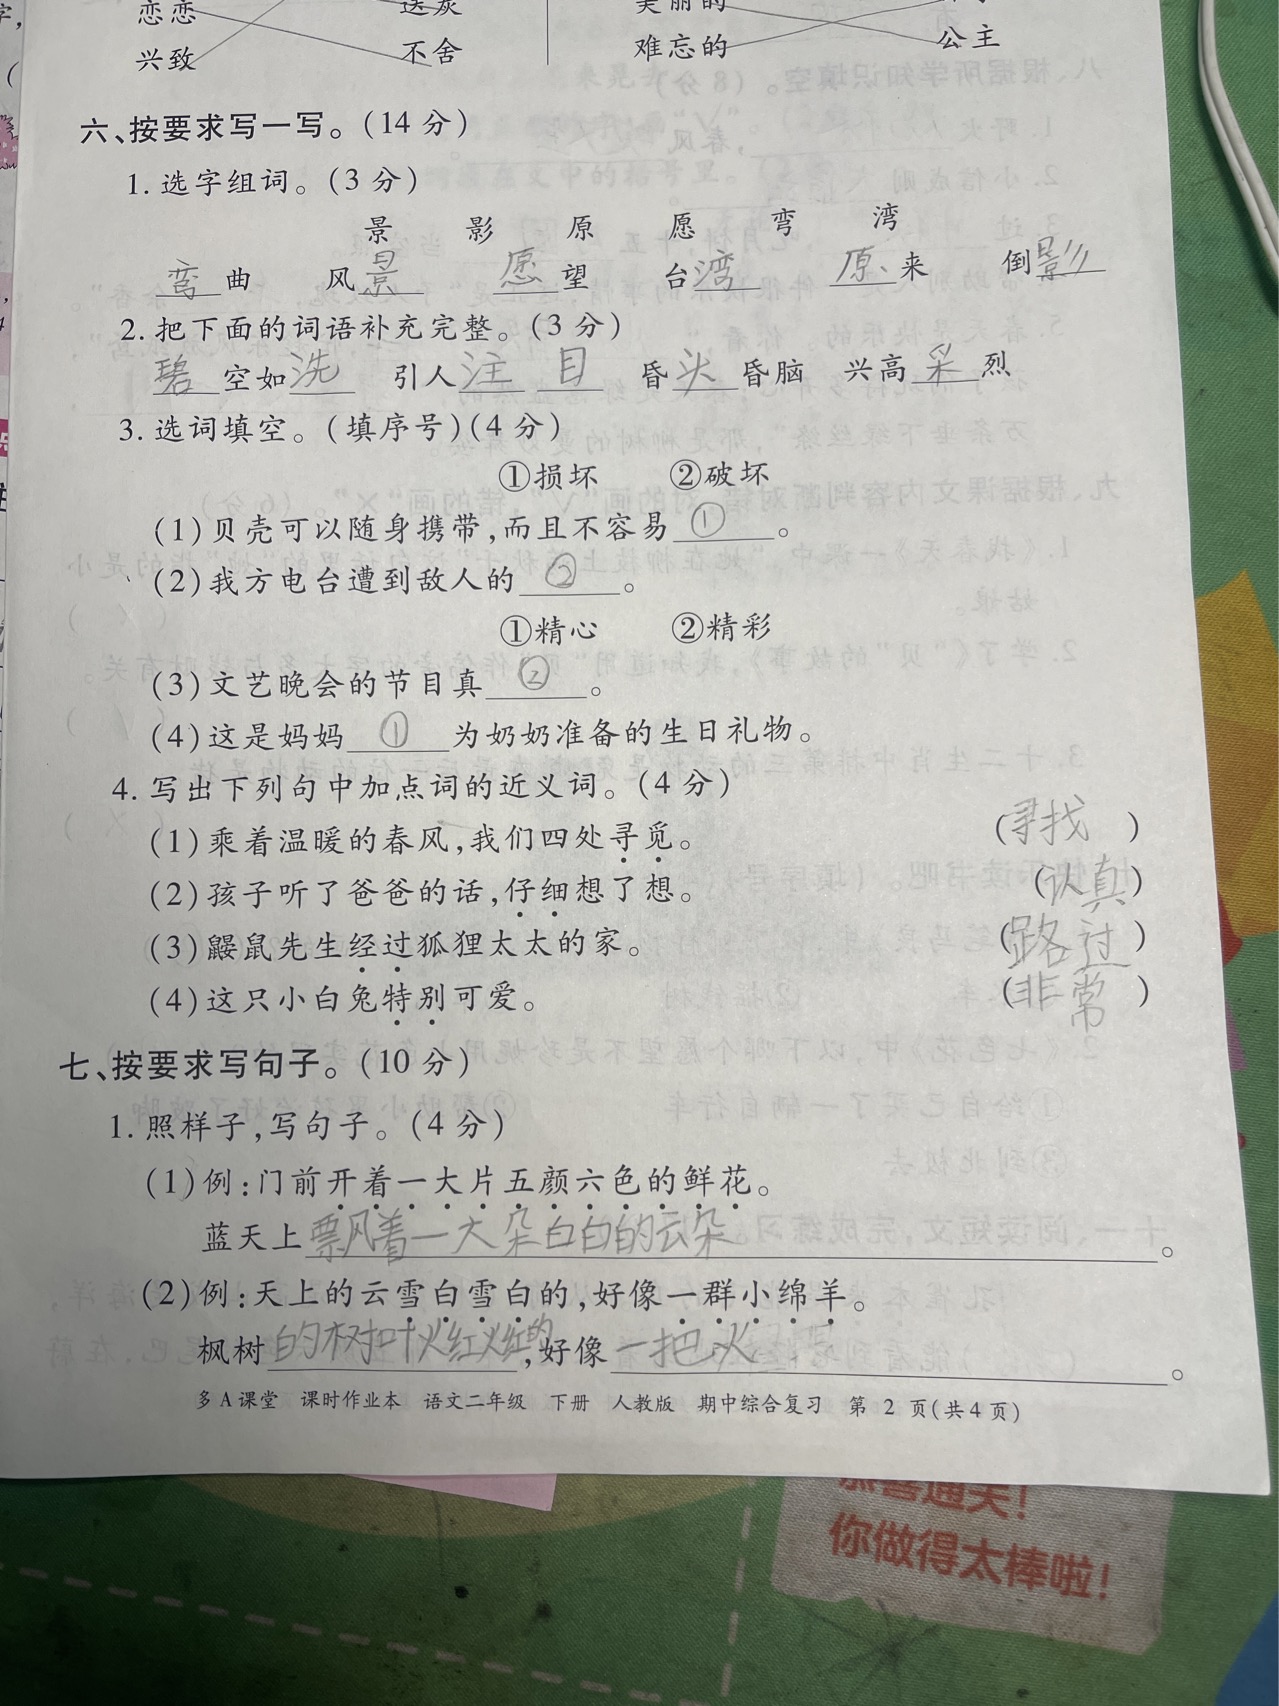 恋恋
送灰
美丽的
兴致
不舍
难忘的
公主
六、按要求写一写。(14分)
1. 选字组词。(3分)
景 影 原 愿 弯 湾
弯曲 风景 愿望 台湾 原来 倒影
2. 把下面的词语补充完整。(3分)
碧空如洗 引人注目 昏头昏脑 兴高采烈
3. 选词填空。(填序号)(4分)
①损坏 ②破坏
(1)贝壳可以随身携带,而且不容易①。
(2)我方电台遭到敌人的②。
①精心 ②精彩
(3)文艺晚会的节目真②。
(4)这是妈妈①为奶奶准备的生日礼物。
4. 写出下列句中加点词的近义词。(4分)
(1)乘着温暖的春风,我们四处寻觅。 (寻找)
(2)孩子听了爸爸的话,仔细想了想。 (认真)
(3)鼹鼠先生经过狐狸太太的家。 (路过)
(4)这只小白兔特别可爱。 (非常)
七、按要求写句子。(10分)
1. 照样子,写句子。(4分)
(1)例:门前开着一大片五颜六色的鲜花。
蓝天上飘着一大朵白白的云朵。
(2)例:天上的云雪白雪白的,好像一群小绵羊。
枫树的树叶火红火红的,好像一把火。
多A课堂 课时作业本 语文二年级 下册 人教版 期中综合复习 第2页(共4页)
恭喜通关!
你做得太棒啦!